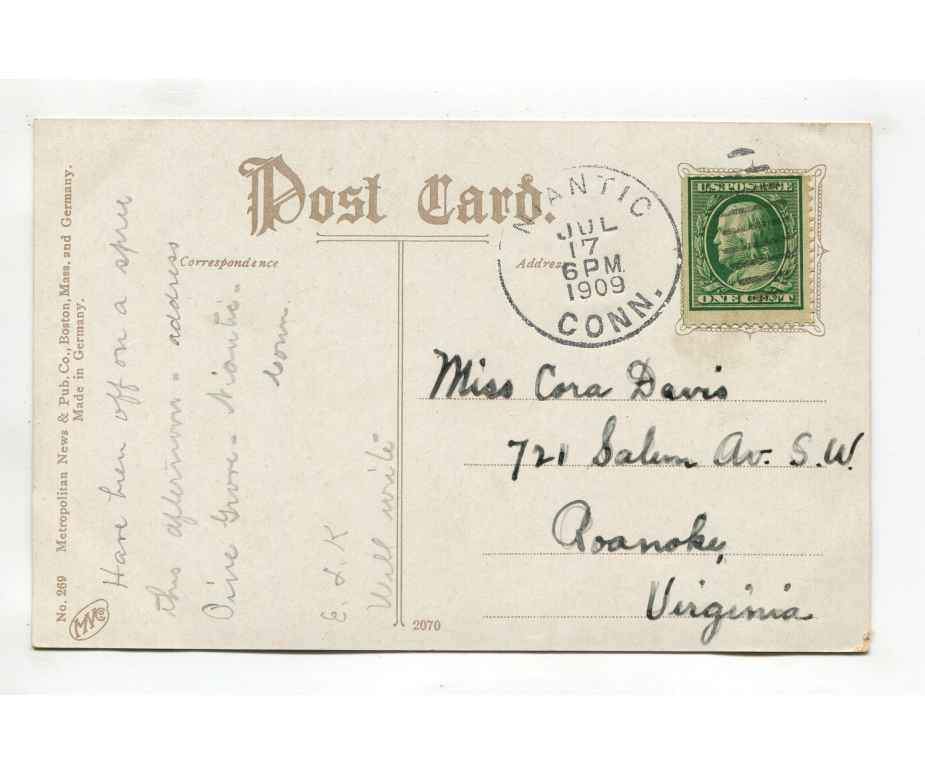 Post Card.
Correspondence
Address
NIANTIC
JUL
17
6 PM
1909
CONN.
U.S. POSTAGE
ONE CENT
Miss Cora Davis
721 Salem Av. S.W.
Roanoke,
Virginia
Have been off on a spree
this afternoon - address
Pine Grove - Niantic -
Conn.
E. L. K
Will write -
No. 269 Metropolitan News & Pub. Co., Boston, Mass. and Germany.
Made in Germany.
2070